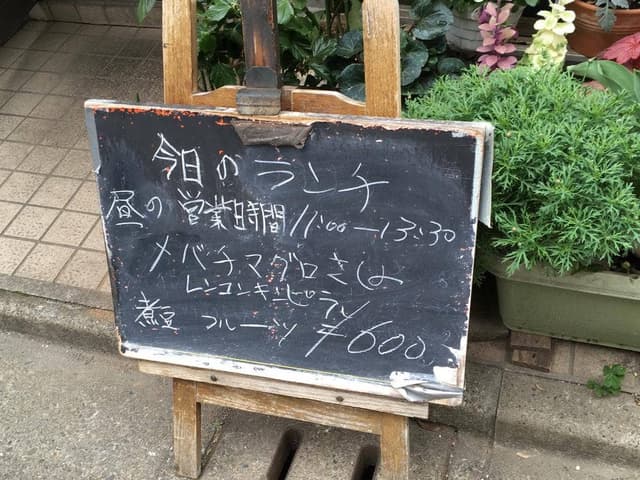 今日のランチ
昼の営業時間 11:00-13:30
メバチマグロさしみ
レンコンキンピラ
煮豆 フルーツ ¥600.